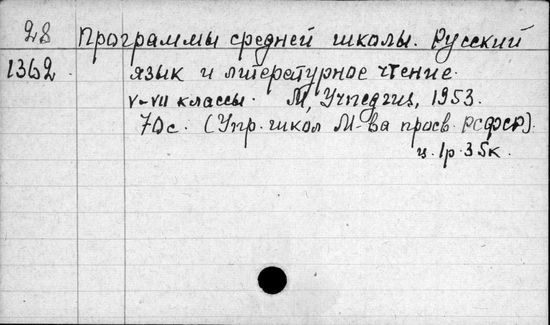 28 Программы средней школы. Русский
1362. язык и литературное чтение.
V-VII классы. М, Учпедгиз, 1953.
70с. (Упр. школ М-ва просв. РСФСР).
ц. 1р. 35к.